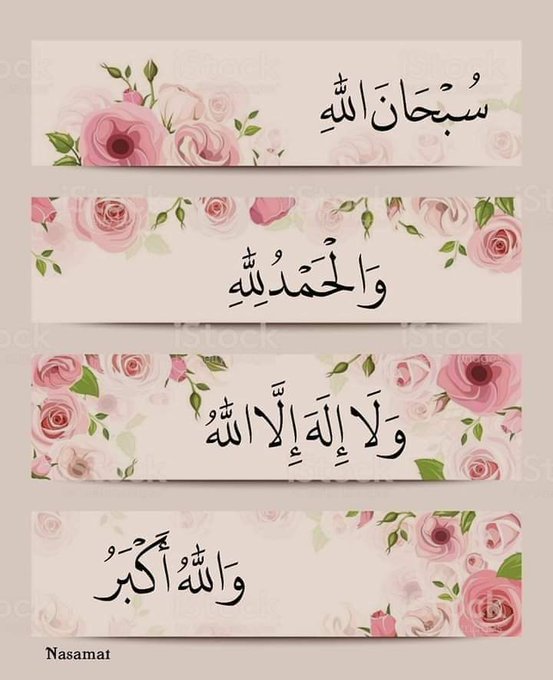 سُبْحَانَ اللّٰهِ
وَالْحَمْدُ لِلّٰهِ
وَلَا إِلَهَ إِلَّا اللّٰهُ
وَاللّٰهُ أَكْبَرُ
Nasamat